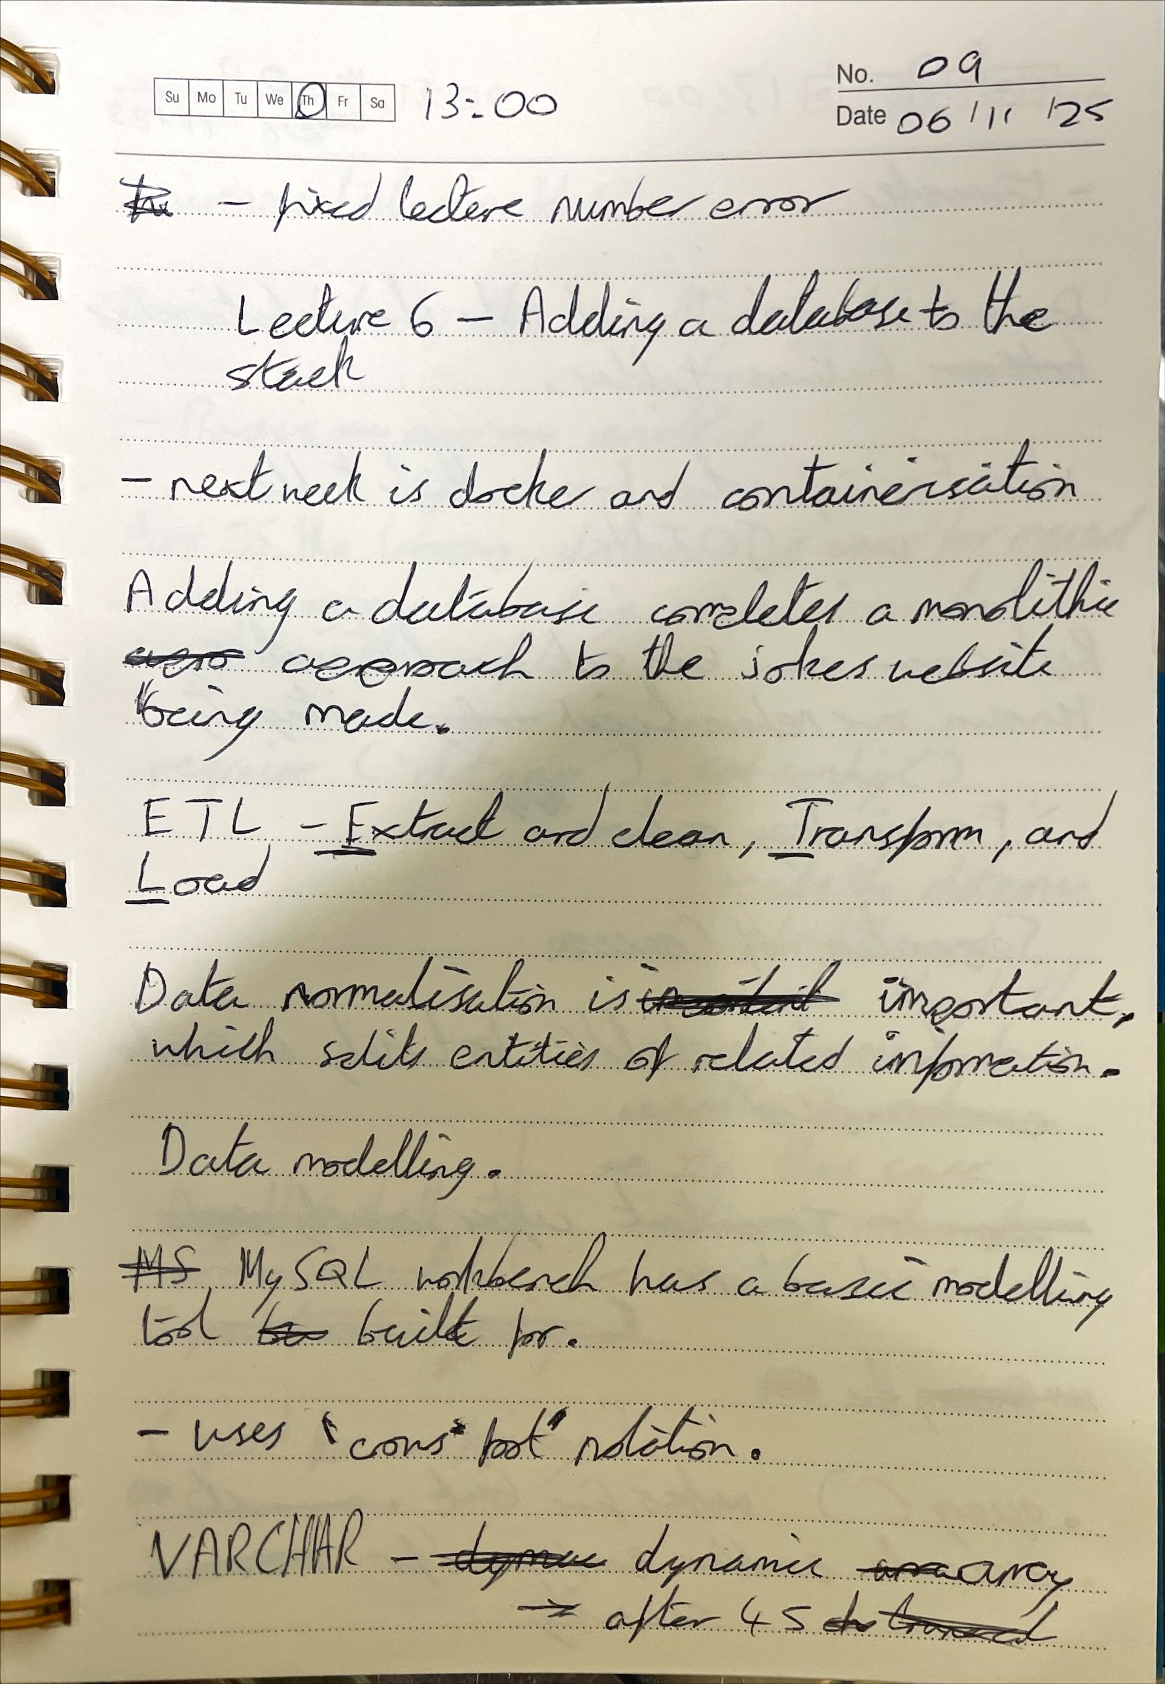 Su Mo Tu We Th Fr Sa 13:00
No. 09
Date 06/11/25
- fixed lecture number error
Lecture 6 - Adding a database to the
stack
- next week is docker and containerisation
Adding a database completes a monolithic
approach to the jokes website
being made.
ETL - Extract and clean, Transform, and
Load
Data normalisation is important,
which splits entities of related information.
Data modelling.
MS MySQL workbench has a basic modelling
tool built for.
- uses "crows foot" notation.
VARCHAR - dynamic array
→ after 45